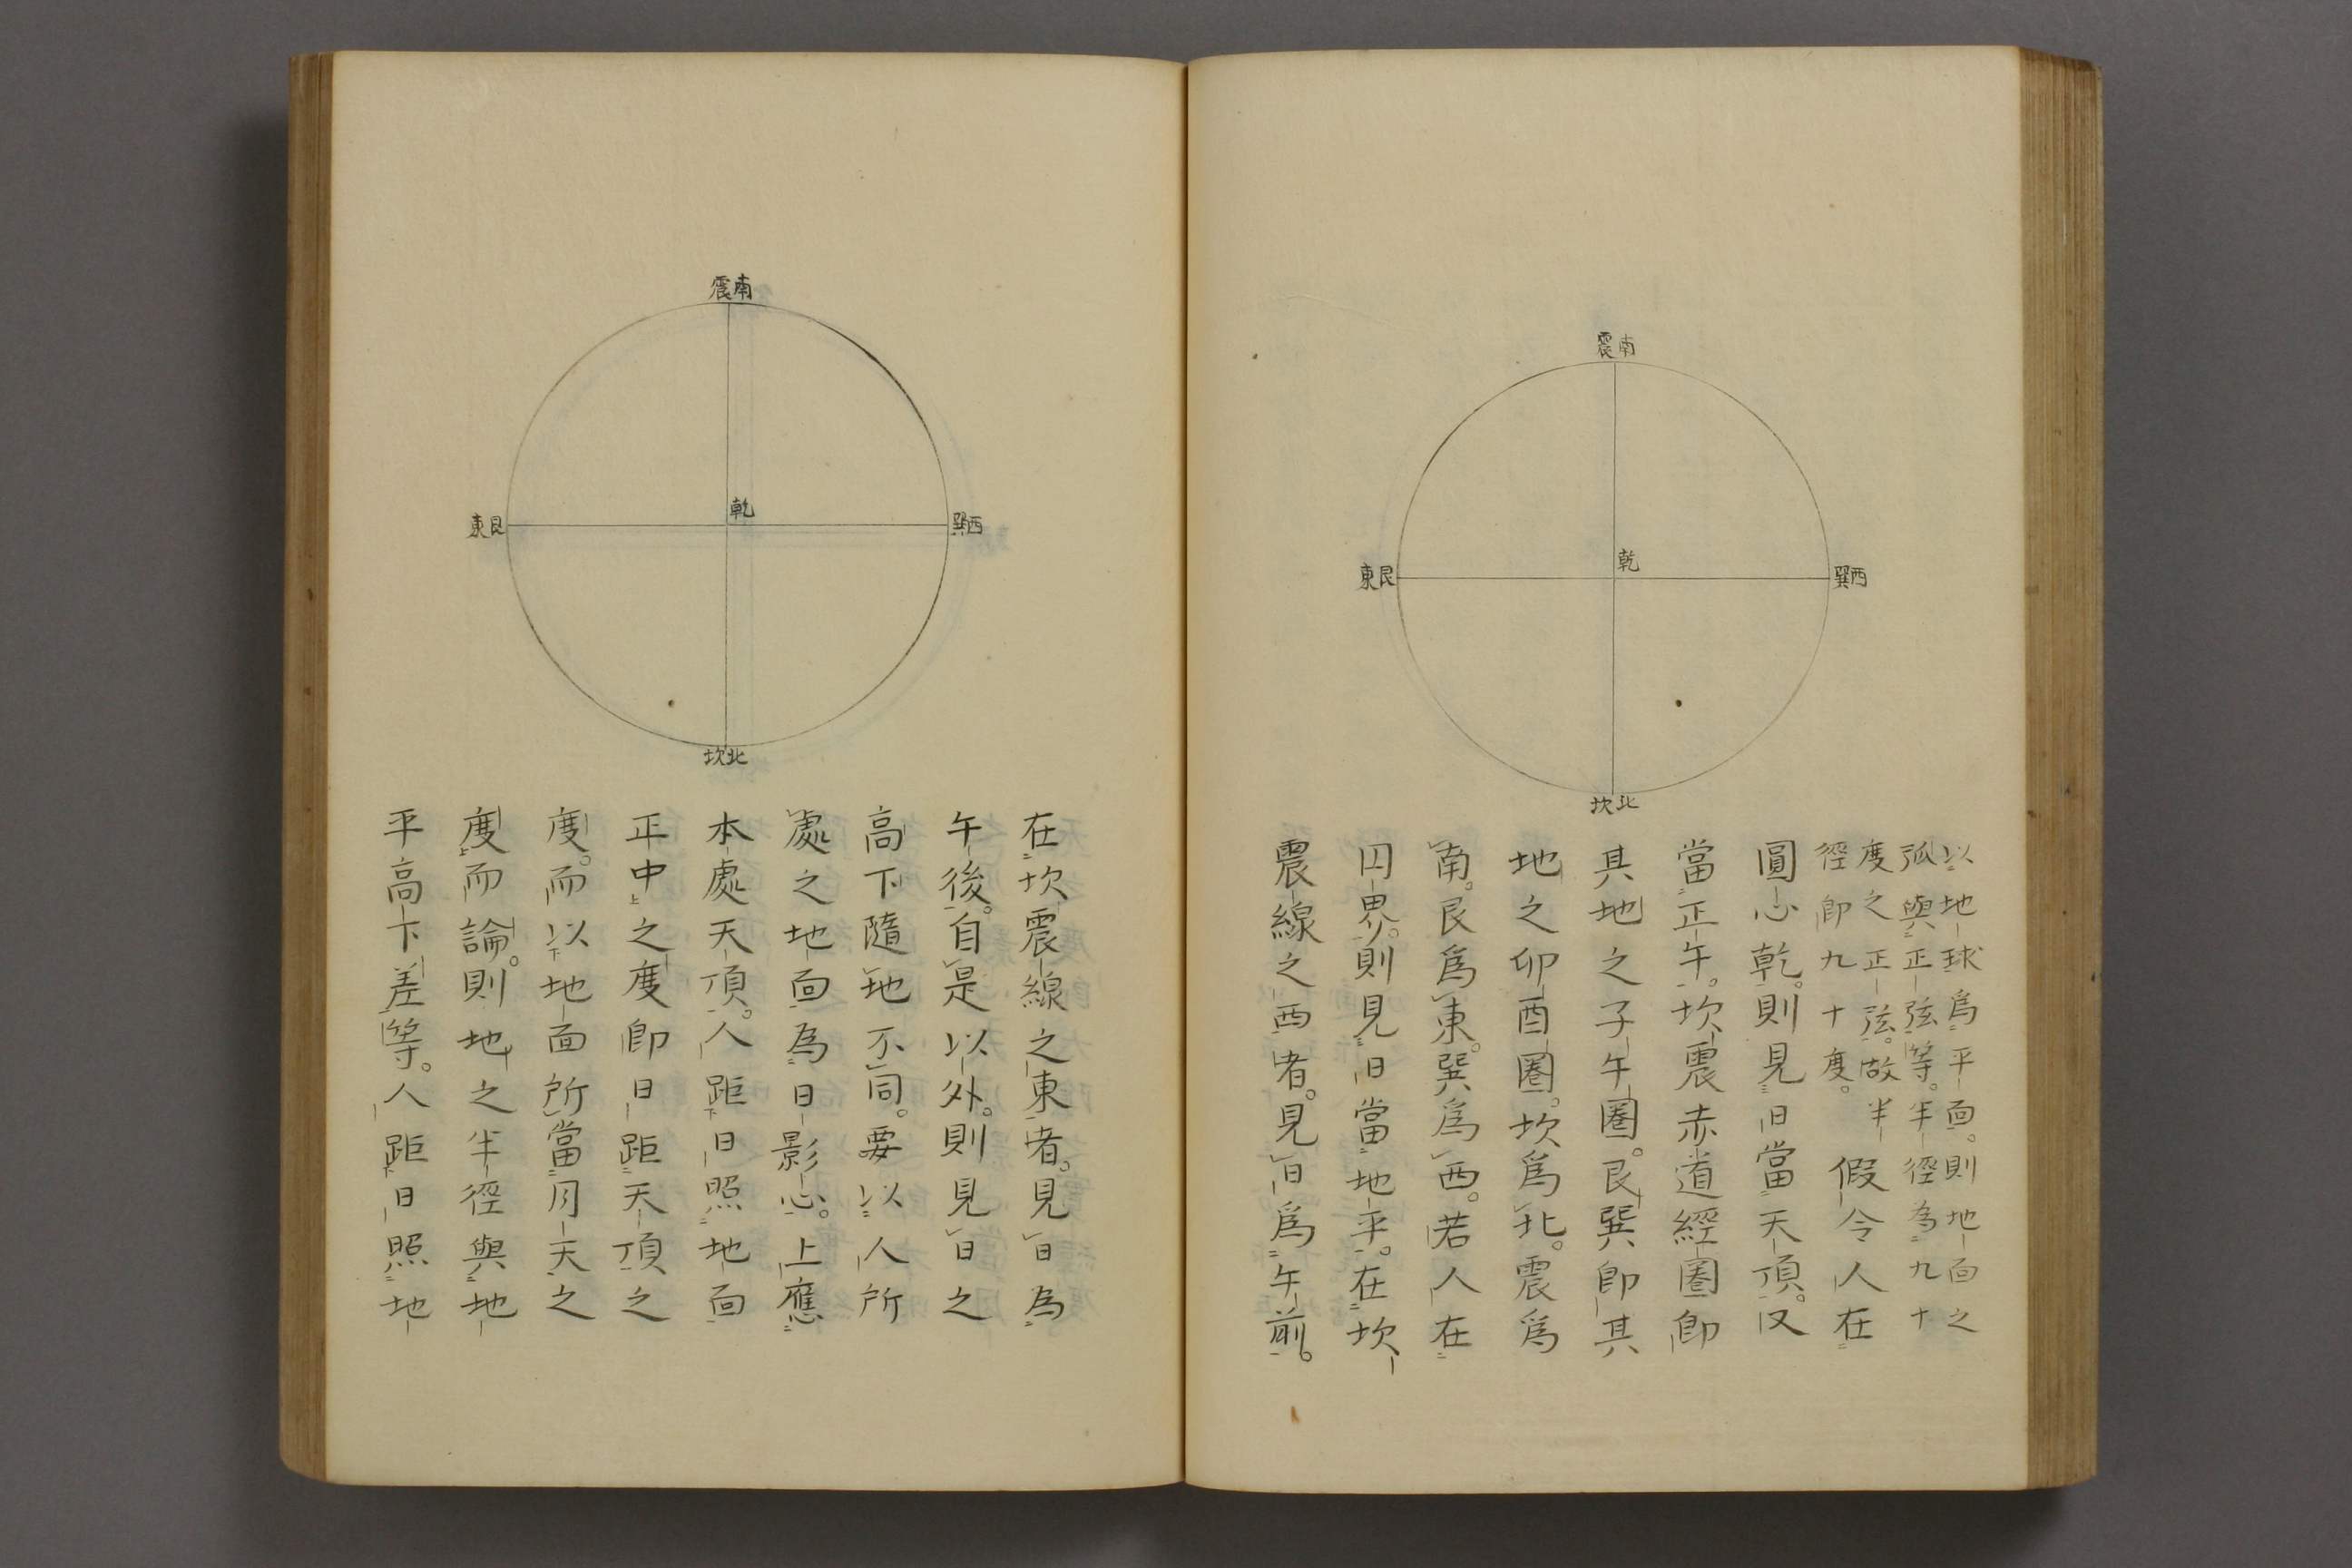 震南
乾
東艮
巽西
坎北
以地球爲平面。則地面之
弧與正弦等。半徑為九十
度之正弦。故半
徑即九十度。
假令人在
圓心乾。則見日當天頂。又
當正午。坎震赤道經圈即
其地之子午圈。艮巽即其
地之卯酉圈。坎爲北。震爲
南。艮爲東。巽爲西。若人在
囚界。則見日當地平。在坎
震線之西者。見日爲午前。
震南
乾
東艮
巽西
坎北
在坎震線之東者。見日為
午後。自是以外。則見日之
高下隨地不同。要以人所
處之地面為日影心。上應
本處天頂。人距日照地面
正中之度即日距天頂之
度。而以地面所當周天之
度而論。則地之半徑與地
平高卞差等。人距日照地